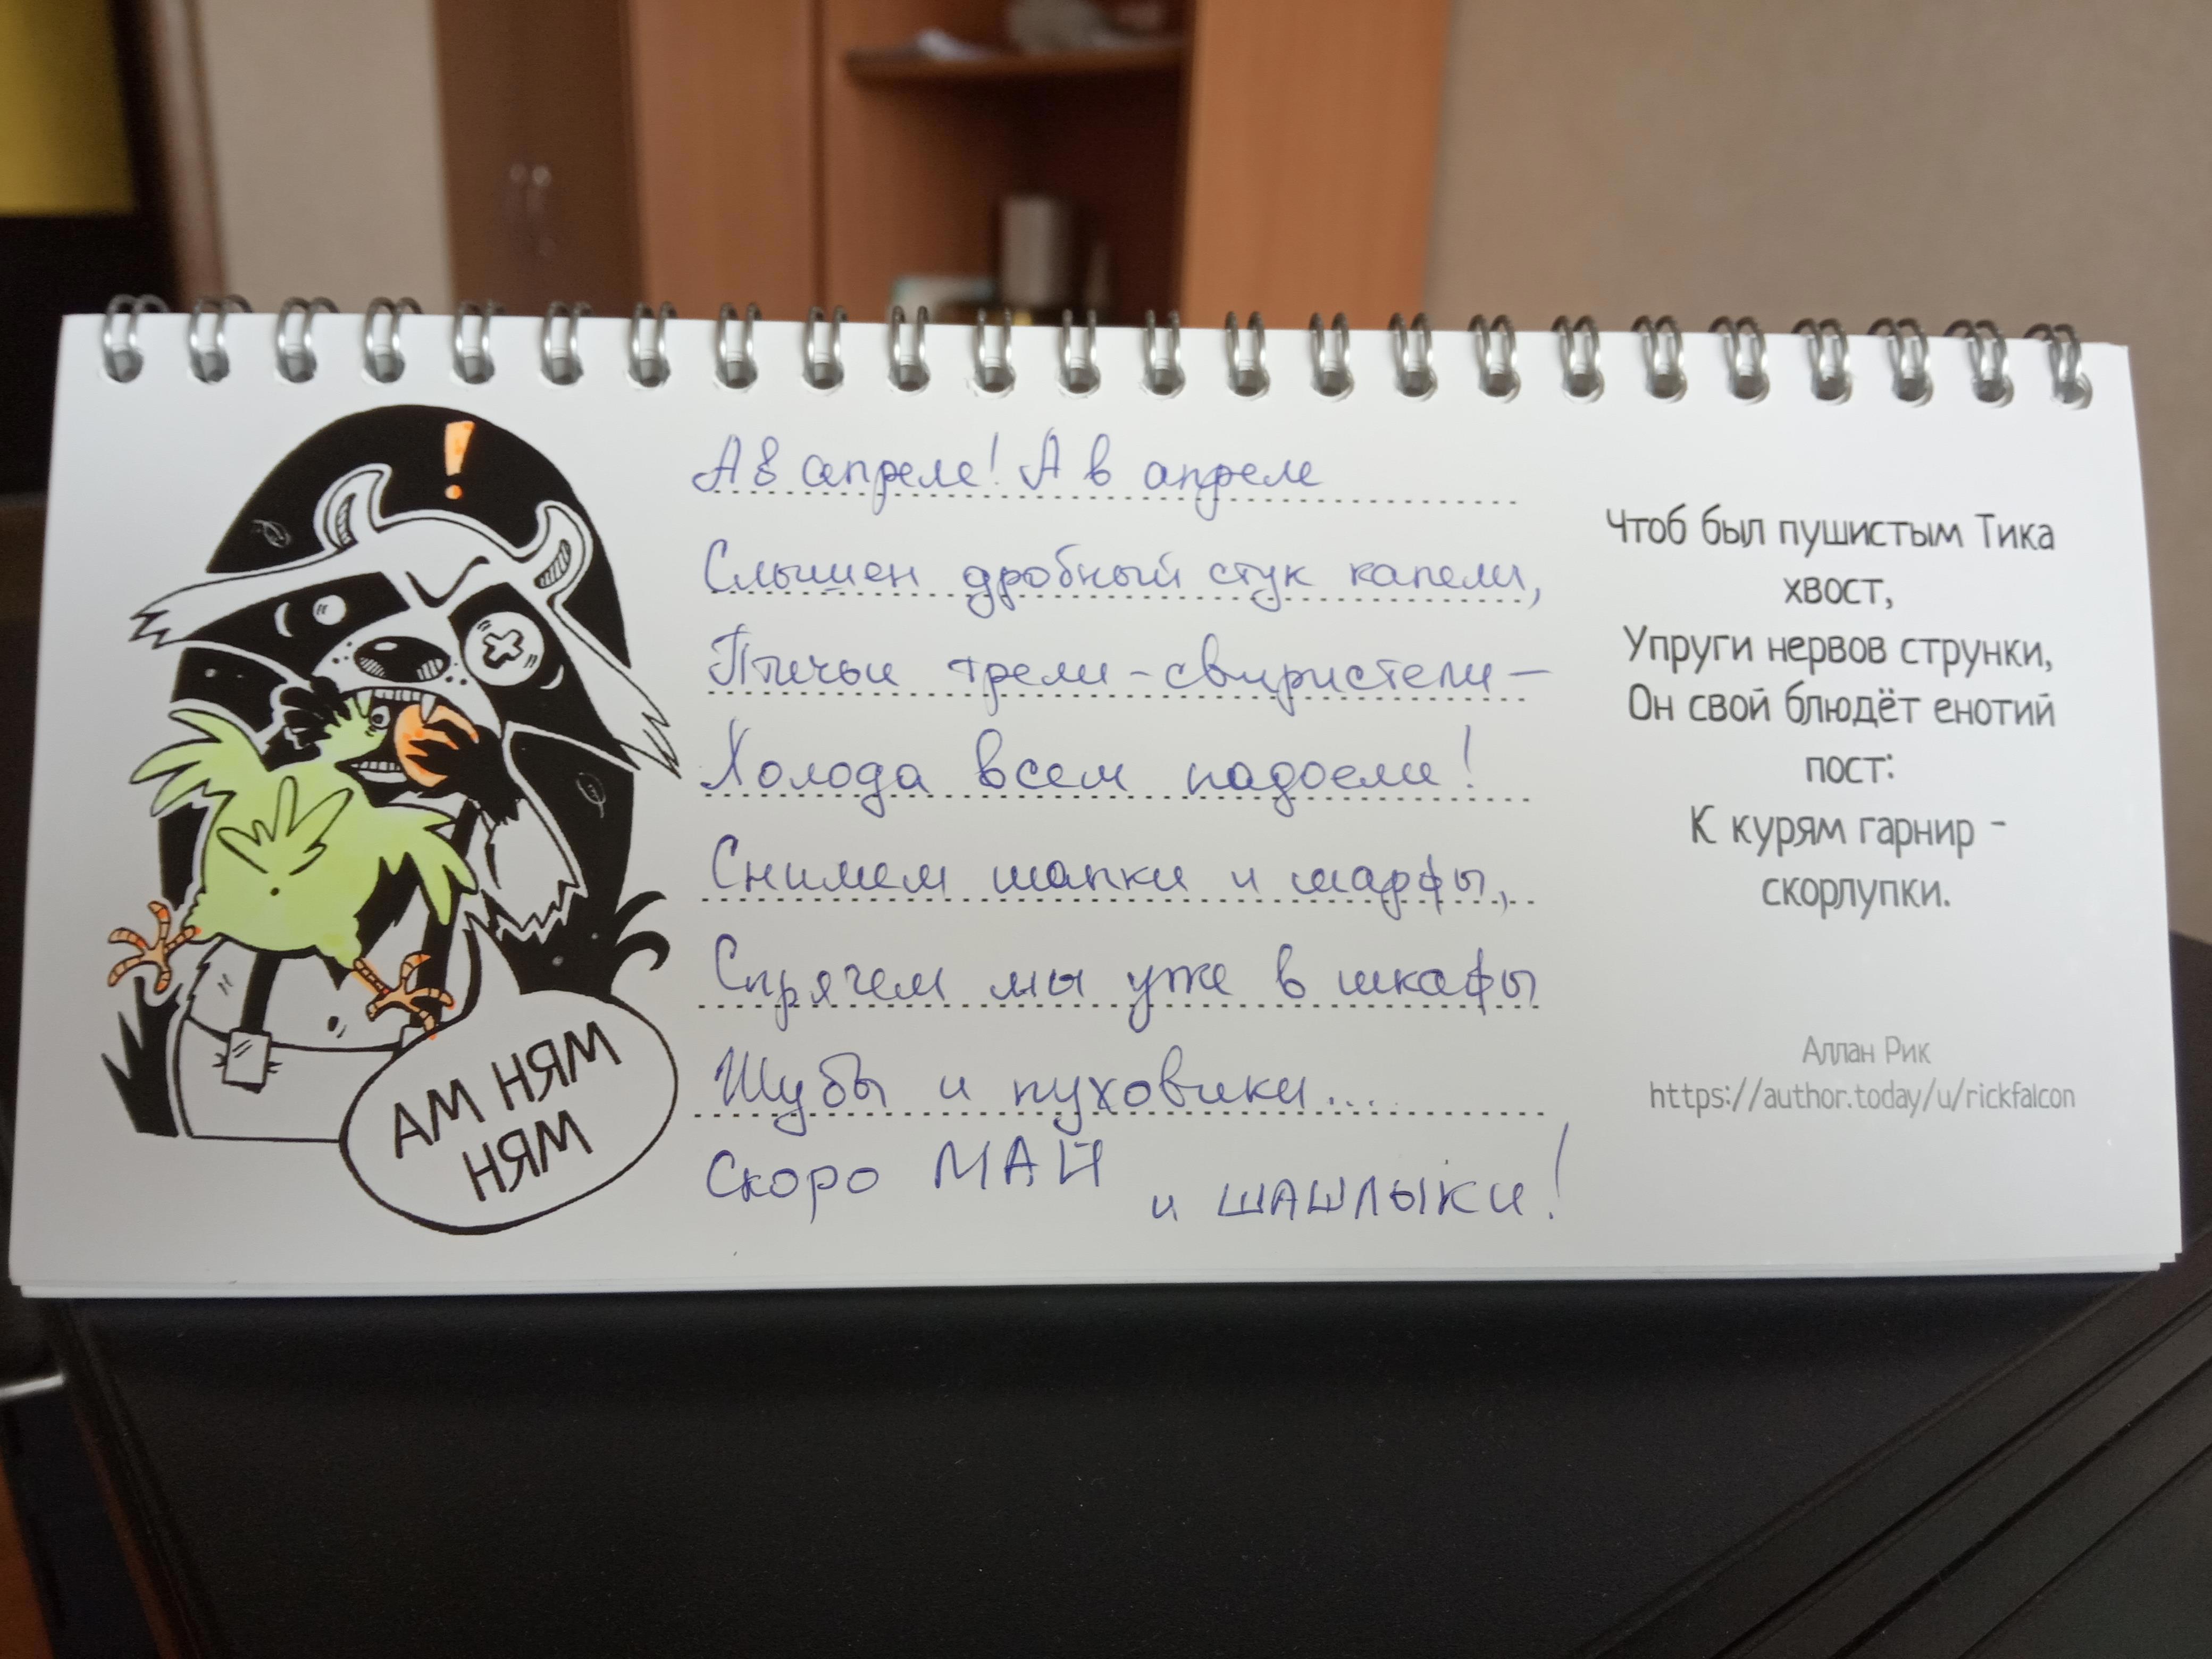 А в апреле! А в апреле
Слышен дробный стук капели,
Птичьи трели-свиристели-
Холода всем надоели!
Снимем шапки и шарфы,
Спрячем мы уже в шкафы
Шубы и пуховики...
Скоро МАЙ и ШАШЛЫКИ!
Чтоб был пушистым Тика
хвост,
Упруги нервов струнки,
Он свой блюдёт енотий
пост:
К курям гарнир -
скорлупки.
Аллан Рик
https://author.today/u/rickfalcon
!
АМ НЯМ
НЯМ